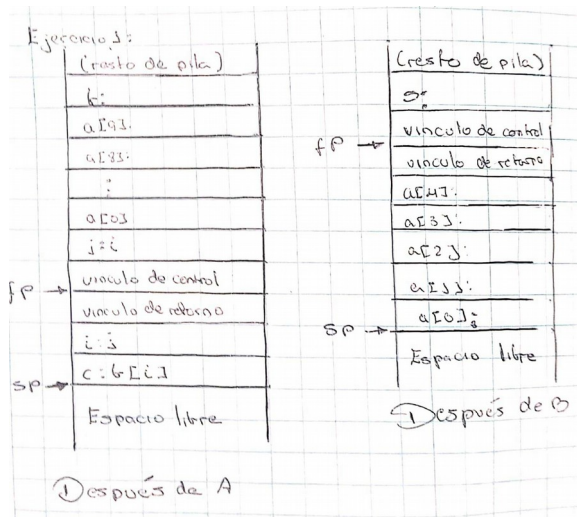 Ejercicio 1:
(resto de pila)
t:
a[9]:
a[8]:
:
a[0]
j: i
vinculo de control
fp →
vinculo de retorno
i: j
c: b[i]
sp →
Espacio libre
① Después de A
(resto de pila)
vinculo de control
fp →
vinculo de retorno
a[4]:
a[3]:
a[2]:
a[1]:
a[0]:
sp →
Espacio libre
① Después de B